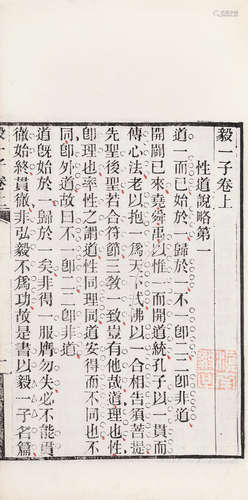 毅一子卷上
性道說略第一
道一而已始於一歸於一不一卽二二卽非道
開闢已來堯舜禹以惟一而開道統孔子以一貫而
傳心法老以抱一為天下式佛以一合相告須菩提
先聖後聖若合符節三教一致豈有他哉道理也性
卽理也率性之謂道性同理同道安得而不同也不
同卽外道故曰不一卽二二卽非道
道旣始於一歸於一矣非得一服膺勿失必不能貫
徹始終貫徹非弘毅不為功故是書以毅一子名篇
毅一子卷上
一